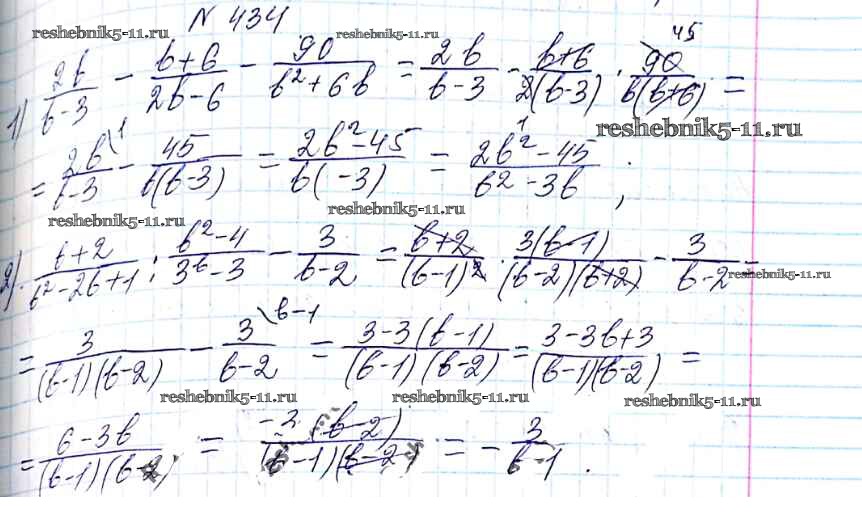 N 434
reshebnik5-11.ru reshebnik5-11.ru
1) 2b/(b-3) - (b+6)/(2b-6) - 90/(b²+6b) = 2b/(b-3) - (b+6)/(2(b-3)) · 90/(b(b+6)) = 45
reshebnik5-11.ru
= 2b/(b-3) \1 - 45/(b(b-3)) = (2b²-45)/(b( -3)) = (2b²-45)/(b²-3b) ;
reshebnik5-11.ru reshebnik5-11.ru
2) (b+2)/(b²-2b+1) : (b²-4)/(3b-3) - 3/(b-2) = (b+2)/(b-1)² · 3(b-1)/((b-2)(b+2)) - 3/(b-2) =
reshebnik5-11.ru
= 3/((b-1)(b-2)) - 3/(b-2) \b-1 = (3-3(b-1))/((b-1)(b-2)) = (3-3b+3)/((b-1)(b-2)) =
reshebnik5-11.ru reshebnik5-11.ru reshebnik5-11.ru
= (6-3b)/((b-1)(b-2)) = -3(b-2)/((b-1)(b-2)) = - 3/(b-1) .